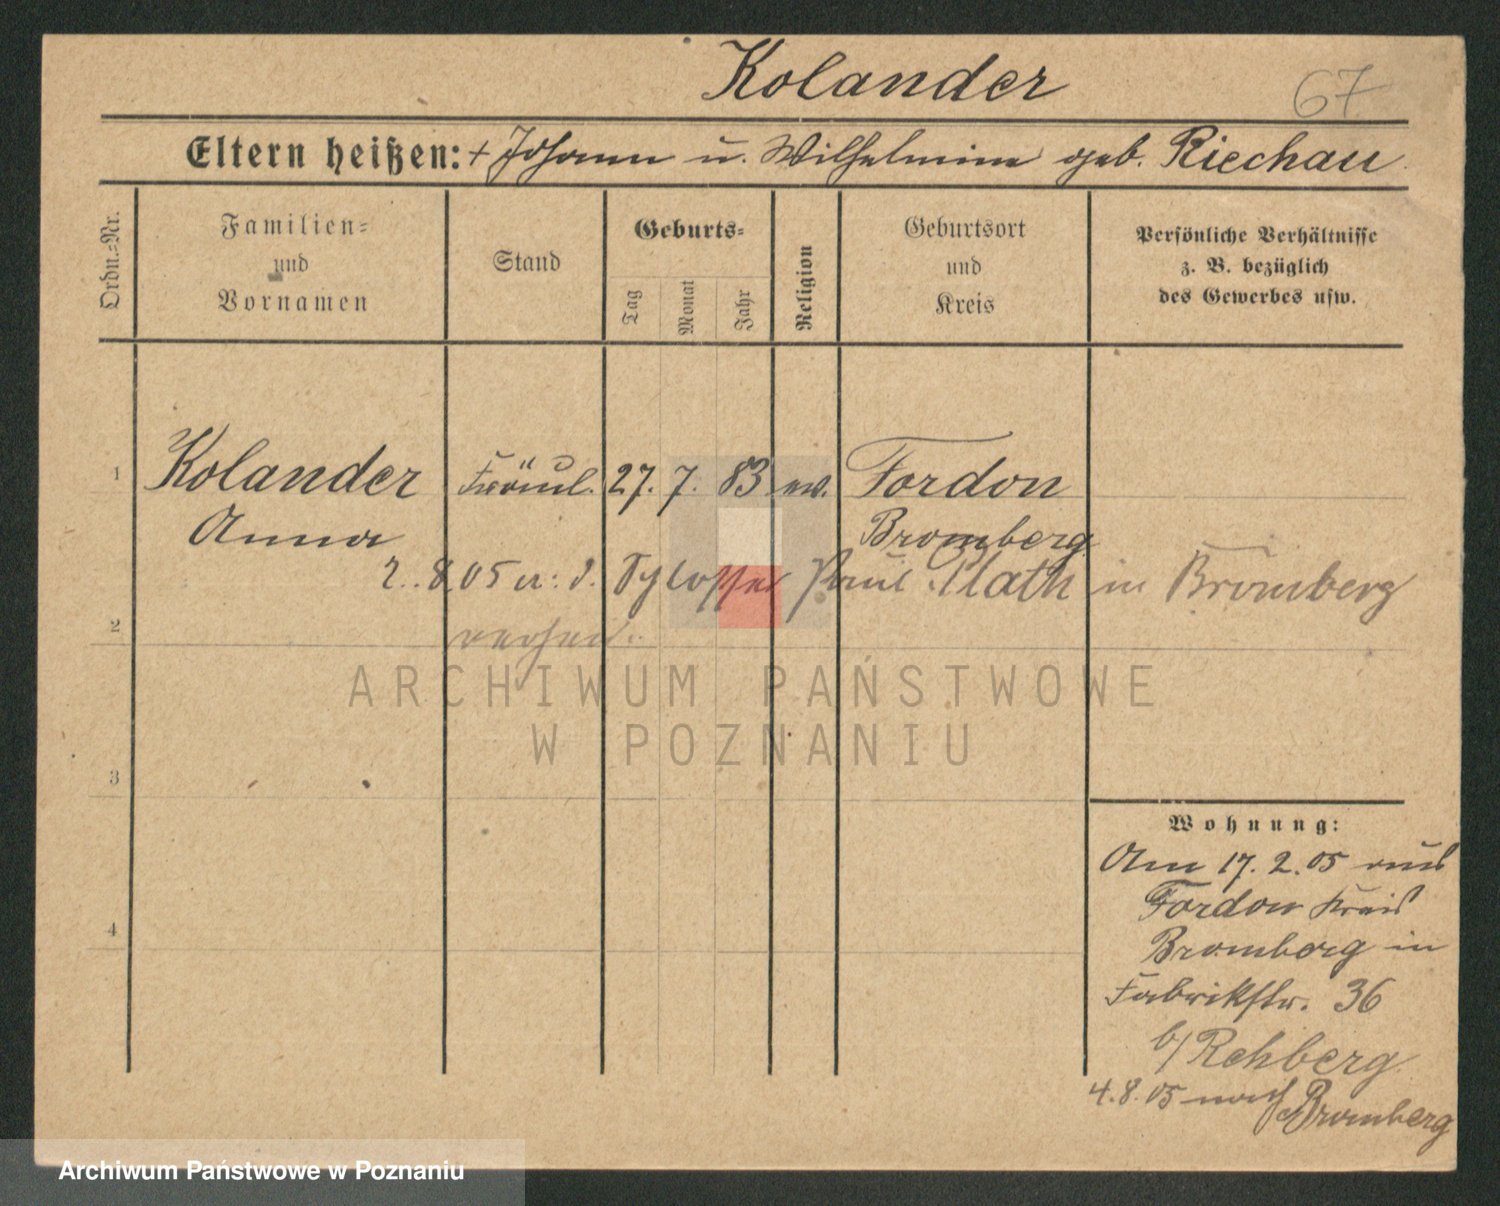 Kolander
67
Eltern heißen: + Johann u. Wilhelmine geb. Riechau
Ordn.-Nr.
Familien-
und
Vornamen
Stand
Geburts-
Tag
Monat
Jahr
Religion
Geburtsort
und
Kreis
Persönliche Verhältnisse
z. B. bezüglich
des Gewerbes usw.
1 Kolander Fräul. 27. 7. 83 ev. Fordon
Anna Bromberg
2. 8 05 a: d. Schlosser Paul Plath in Bromberg
2
verheir.
3
4
Wohnung:
Am 17. 2. 05 aus
Fordon Kreis
Bromberg in
Fabrikstr. 36
b/ Rehberg
4. 8. 05 nach Bromberg
ARCHIWUM PAŃSTWOWE
W POZNANIU
Archiwum Państwowe w Poznaniu